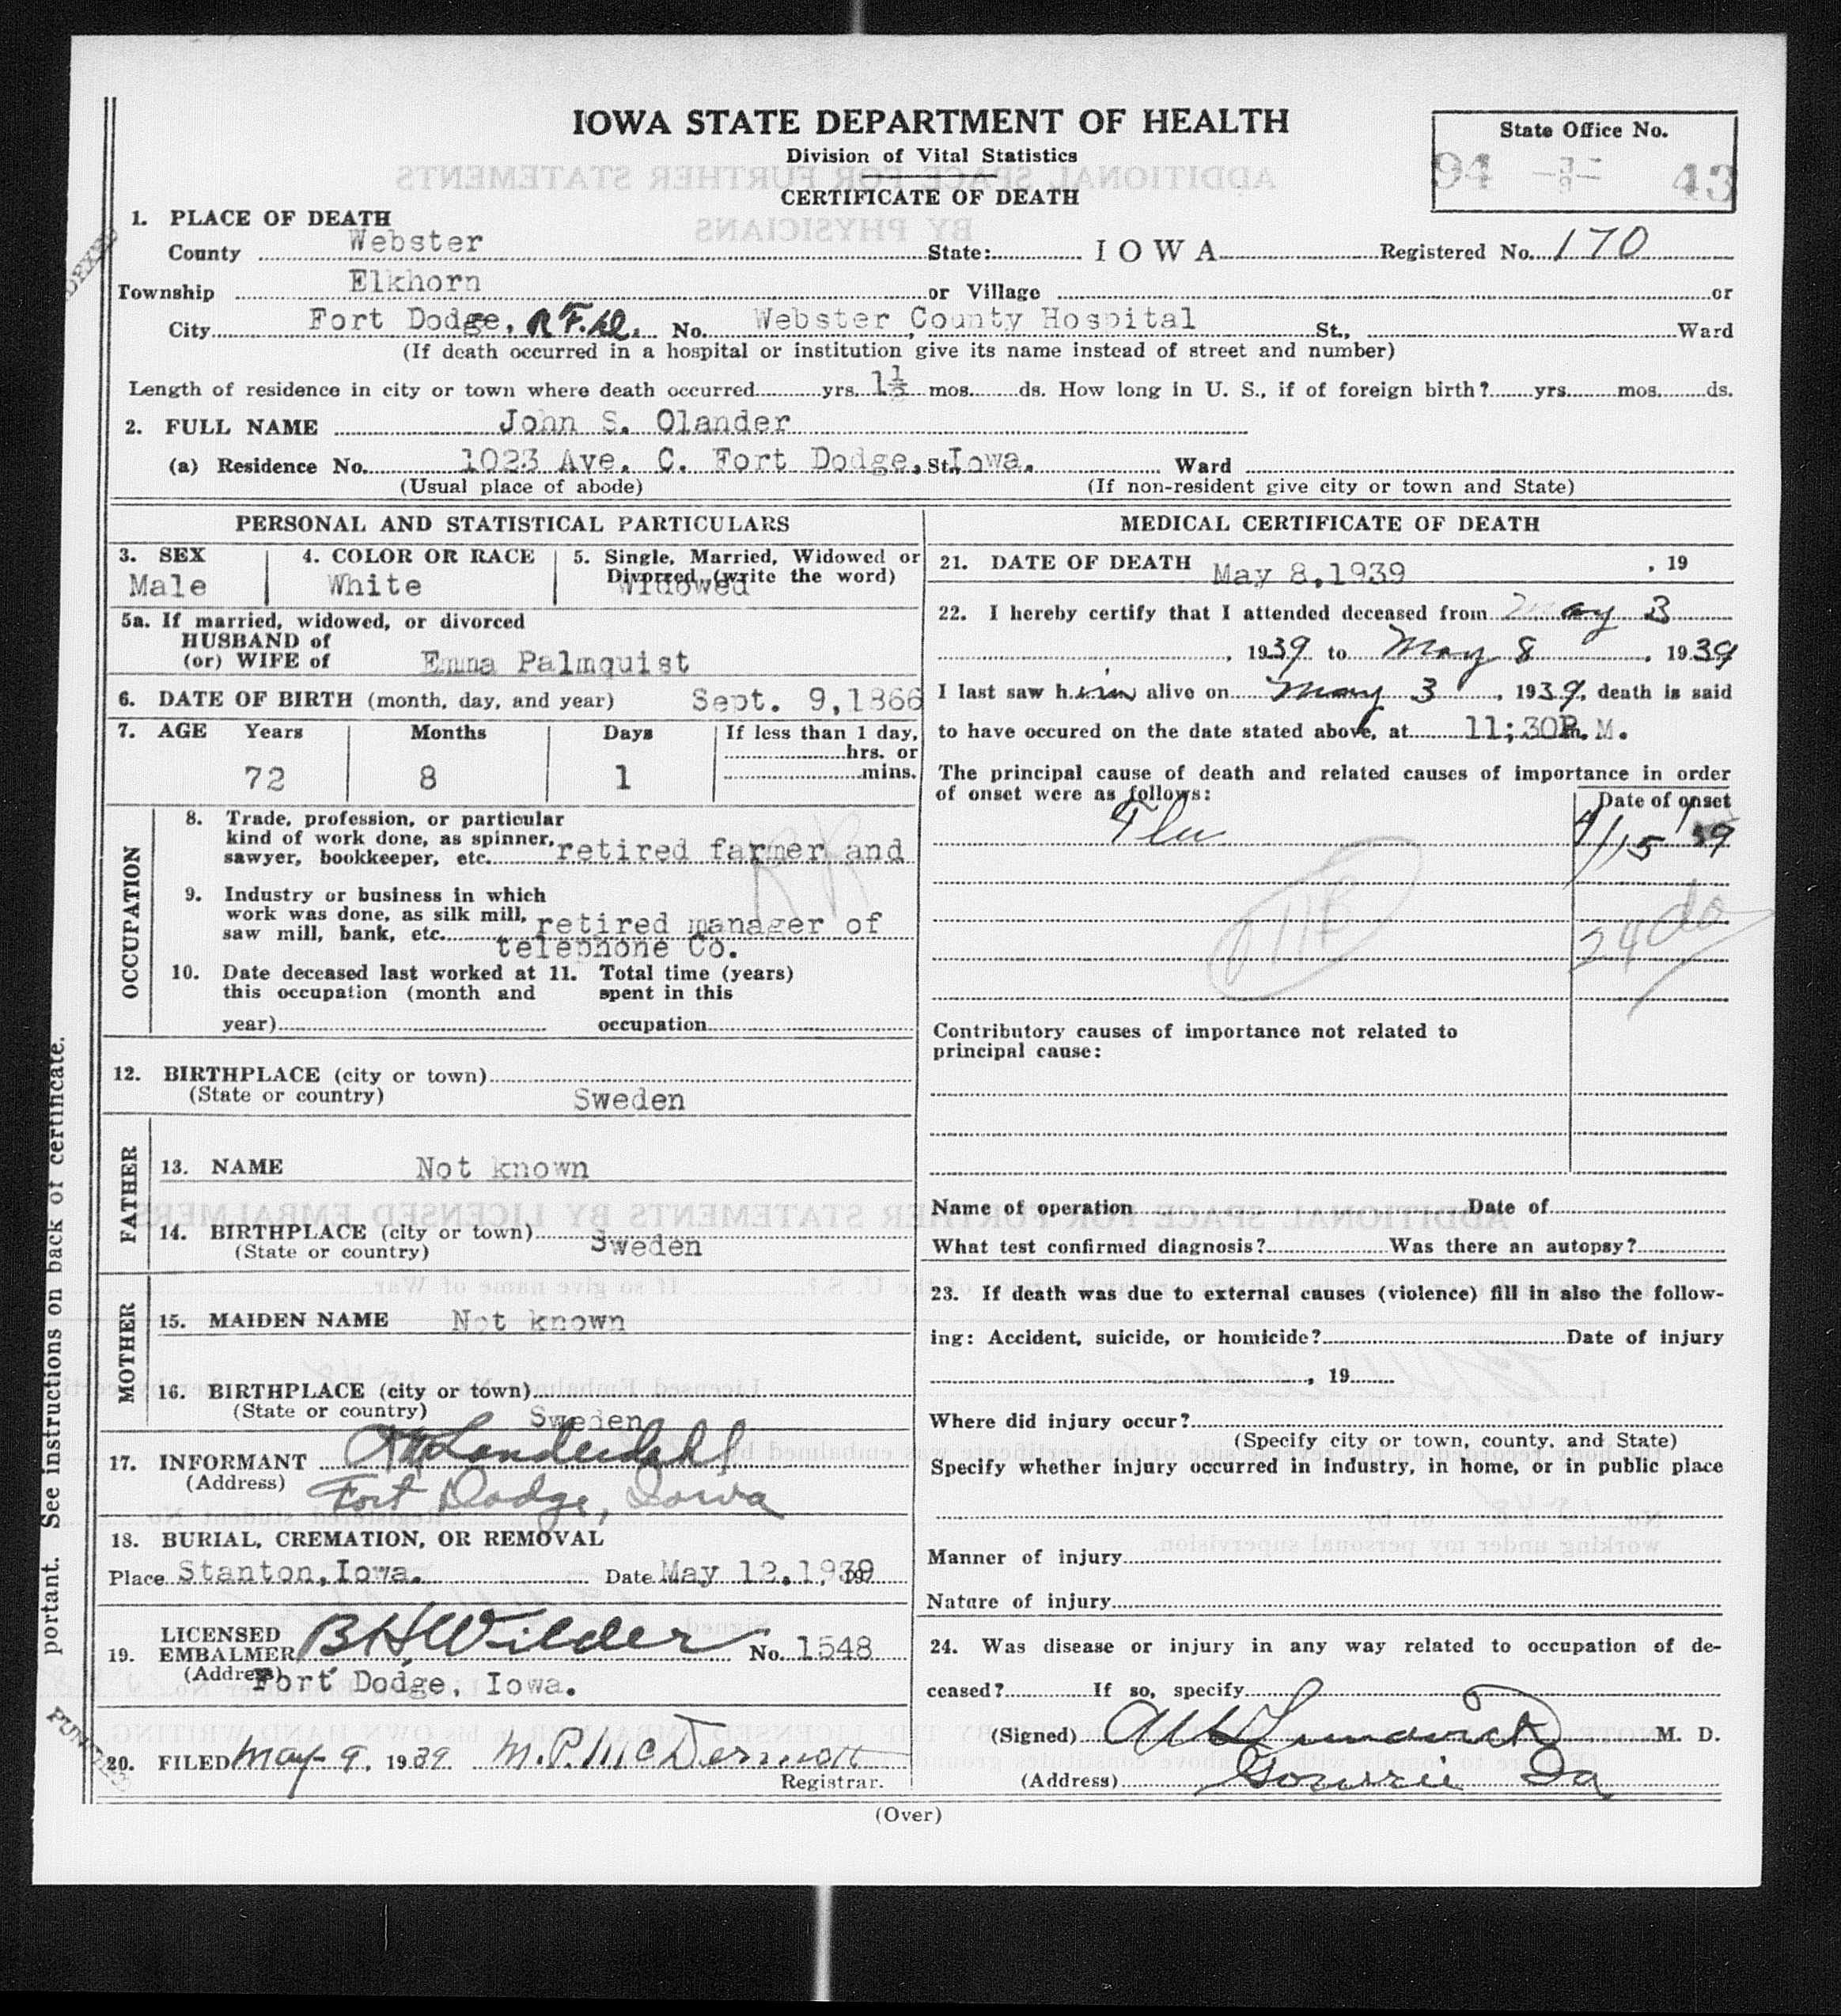 IOWA STATE DEPARTMENT OF HEALTH
Division of Vital Statistics
CERTIFICATE OF DEATH
State Office No.
94 43
1. PLACE OF DEATH
County Webster State: IOWA Registered No. 170
Township Elkhorn or Village or
City Fort Dodge, R.F.D. No. Webster County Hospital St., Ward
(If death occurred in a hospital or institution give its name instead of street and number)
Length of residence in city or town where death occurred yrs. 1½ mos. ds. How long in U. S., if of foreign birth? yrs. mos. ds.
2. FULL NAME John S. Olander
(a) Residence No. 1023 Ave. C. Fort Dodge, St. Iowa. Ward
(Usual place of abode) (If non-resident give city or town and State)
PERSONAL AND STATISTICAL PARTICULARS
3. SEX 4. COLOR OR RACE 5. Single, Married, Widowed or
Divorced, (write the word)
Male White Widowed
5a. If married, widowed, or divorced
HUSBAND of
(or) WIFE of Emma Palmquist
6. DATE OF BIRTH (month, day, and year) Sept. 9,1866
7. AGE Years Months Days If less than 1 day,
hrs. or
72 8 1 mins.
OCCUPATION
8. Trade, profession, or particular
kind of work done, as spinner,
sawyer, bookkeeper, etc. retired farmer and
9. Industry or business in which
work was done, as silk mill,
saw mill, bank, etc. retired manager of
telephone Co.
10. Date deceased last worked at 11. Total time (years)
this occupation (month and spent in this
year) occupation
12. BIRTHPLACE (city or town)
(State or country) Sweden
FATHER
13. NAME Not known
14. BIRTHPLACE (city or town)
(State or country) Sweden
MOTHER
15. MAIDEN NAME Not known
16. BIRTHPLACE (city or town)
(State or country) Sweden
17. INFORMANT
(Address) Fort Dodge, Iowa
18. BURIAL, CREMATION, OR REMOVAL
Place Stanton, Iowa. Date May 12,1939
19. LICENSED
EMBALMER B H Wilder No. 1548
(Address) Fort Dodge, Iowa.
20. FILED May-9, 1939 M.P. McDermott
Registrar.
MEDICAL CERTIFICATE OF DEATH
21. DATE OF DEATH May 8,1939 , 19
22. I hereby certify that I attended deceased from May 3
, 1939 to May 8 , 1939
I last saw him alive on May 3 , 1939, death is said
to have occured on the date stated above, at 11;30P. M.
The principal cause of death and related causes of importance in order
of onset were as follows: Date of onset
Flu 4/15 39
24 do
Contributory causes of importance not related to
principal cause:
Name of operation Date of
What test confirmed diagnosis? Was there an autopsy?
23. If death was due to external causes (violence) fill in also the follow-
ing: Accident, suicide, or homicide? Date of injury
, 19
Where did injury occur?
(Specify city or town, county, and State)
Specify whether injury occurred in industry, in home, or in public place
Manner of injury
Nature of injury
24. Was disease or injury in any way related to occupation of de-
ceased? If so, specify
(Signed) M. D.
(Address) Gowrie Ia
(Over)
portant. See instructions on back of certificate.